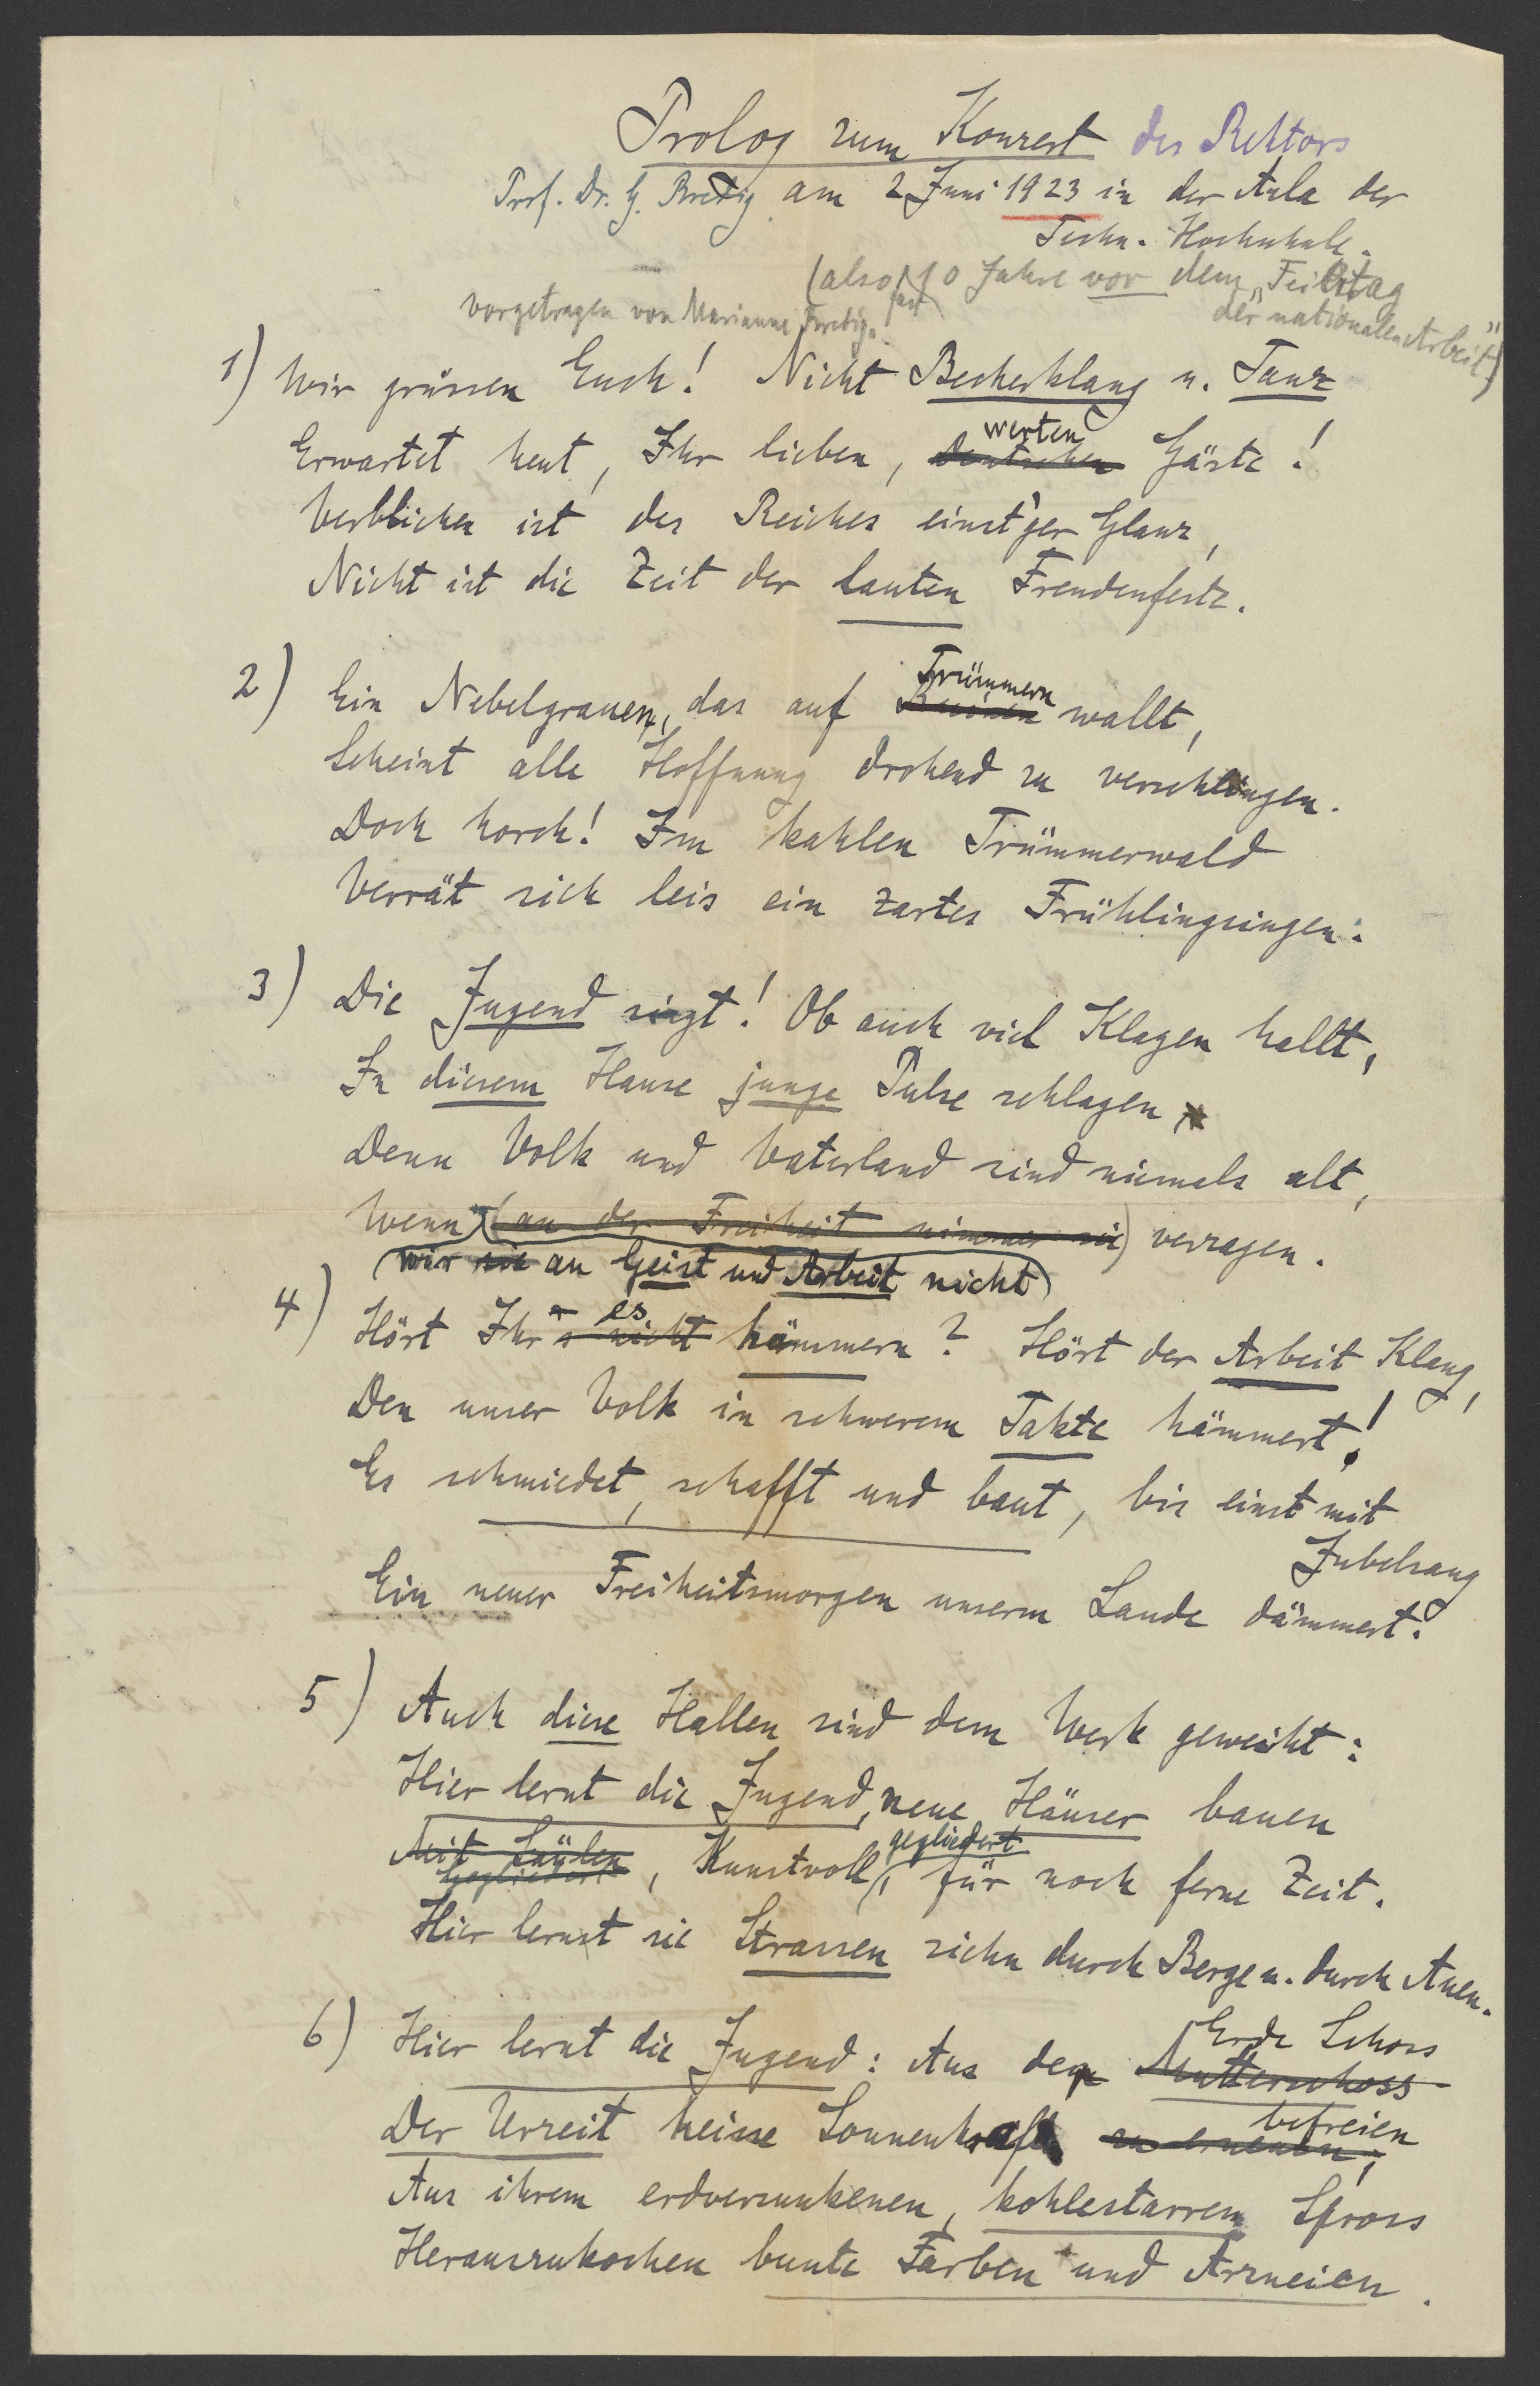 Prolog zum Konzert des Rektors
Prof. Dr. G. Bredig am 2 Juni 1923 in der Aula der
Techn. Hochschule.
(also fast 10 Jahre vor dem "Feiertag
der nationalen Arbeit")
vorgetragen von Marianne Bredig.
1) Wir grüssen Euch! Nicht Becherklang u. Tanz
werten
Erwartet heut, Ihr lieben, deutschen Gäste!
Verblichen ist des Reiches einst'ger Glanz,
Nicht ist die Zeit der lauten Freudenfeste.
Trümmern
2) Ein Nebelgrauen, das auf Ruinen wallt,
Scheint alle Hoffnung drohend zu verschlingen.
Doch horch! Im kahlen Trümmerwald
Verrät sich leis ein zartes Frühlingsingen:
3) Die Jugend singt! Ob auch viel Klagen hallt,
In diesem Hause junge Pulse schlagen
Denn Volk und Vaterland sind niemals alt,
Wenn (an der Freiheit nimmer sie) verzagen.
(wir sie an Geist und Arbeit nicht)
es
4) Hört Ihr's nicht hämmern? Hört der Arbeit Klang,
Den unser Volk in schwerem Takte hämmert!
Es schmiedet, schafft und baut, bis einst mit
Jubelsang
Ein neuer Freiheitsmorgen unserm Lande dämmert!
5) Auch diese Hallen sind dem Werk geweiht:
Hier lernt die Jugend, neue Häuser bauen
gegliedert
Mit Säulen, Kunstvoll, für noch ferne Zeit.
Gegliedert
Hier lernt sie Strassen ziehn durch Berge u. durch Auen.
Erde Schoss
6) Hier lernt die Jugend: Aus dem Mutterschoss
befreien
Der Urzeit heisse Sonnenkraft zu erneuen,
Aus ihrem erdversunkenen, kohlestarrem Spross
Herauszukochen bunte Farben und Arzneien.